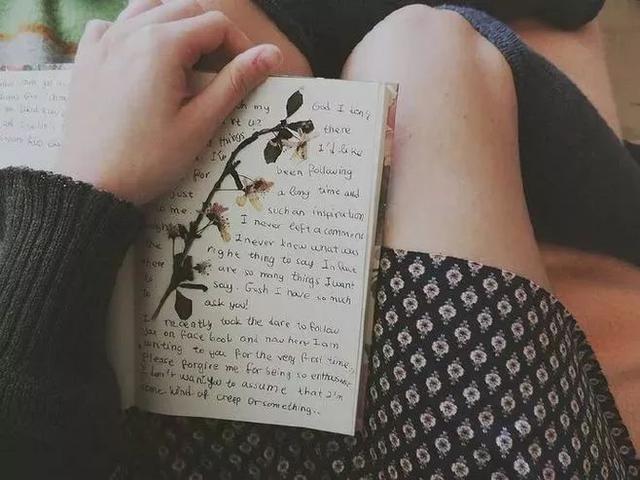 my God I don't
there
things I'd like
for been following
just a long time and
me such an inspiration
I never left a comment
I never knew what was
right thing to say. In fact
there are so many things I want
to say. Gosh I have so much
to ask you!
recently took the dare to follow
you on face book and now here I am
writing to you for the very first time.
Please forgive me for being so enthusias
I don't want you to assume that I'm
some kind of creep or something..